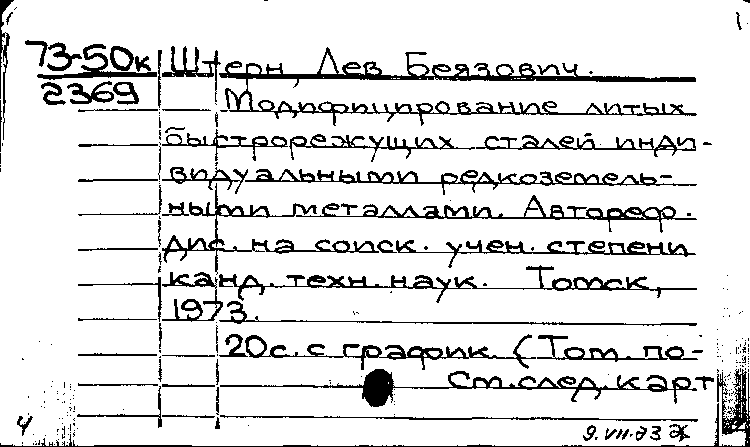 73-50к Штерн, Лев Беязович.
2369 Модифицирование литых
быстрорежущих сталей инди-
видуальными редкоземель-
ными металлами. Автореф.
дис. на соиск. учен. степени
канд. техн. наук. Томск,
1973.
20с. с график. (Том. по-
См.след.карт
4 9.VII.73